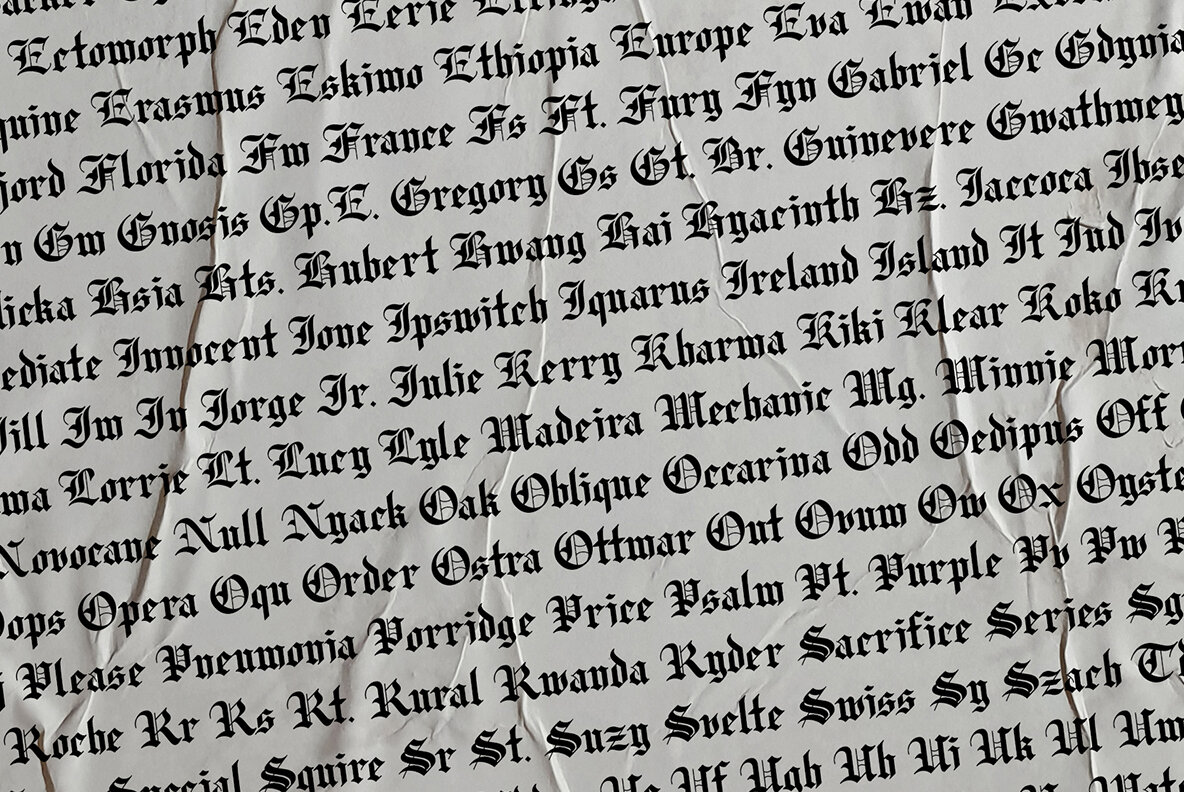 Ectomorph Eden Eerie
quine Erasmus Eskimo Ethiopia Europe Eva Ewan
jord Florida Fm France Fs Ft. Fury Fyn Gabriel Gc Gdynia
n Gm Gnosis Gp.E. Gregory Gs Gt. Br. Guinevere Gwathmey
licka Hsia Hts. Hubert Hwang Hai Hyacinth Hz. Iaccoca Ibse
ediate Innocent Ione Ipswitch Iquarus Ireland Island It Iud Iv
Jill Jm Jn Jorge Jr. Julie Kerry Kharma Kiki Klear Koko Kr
ma Lorrie Lt. Lucy Lyle Madeira Mechanic Mg. Minnie Morr
Novocane Null Nyack Oak Oblique Occarina Odd Oedipus Off
Oops Opera Oqu Order Ostra Ottmar Out Ovum Ow Ox Oyste
j Please Pneumonia Porridge Price Psalm Pt. Purple Pv Pw P
Roche Rr Rs Rt. Rural Rwanda Ryder Sacrifice Series Sg
Special Squire Sr St. Suzy Svelte Swiss Sy Szach
Uf Ugh Uh Ui Uk Ul Um